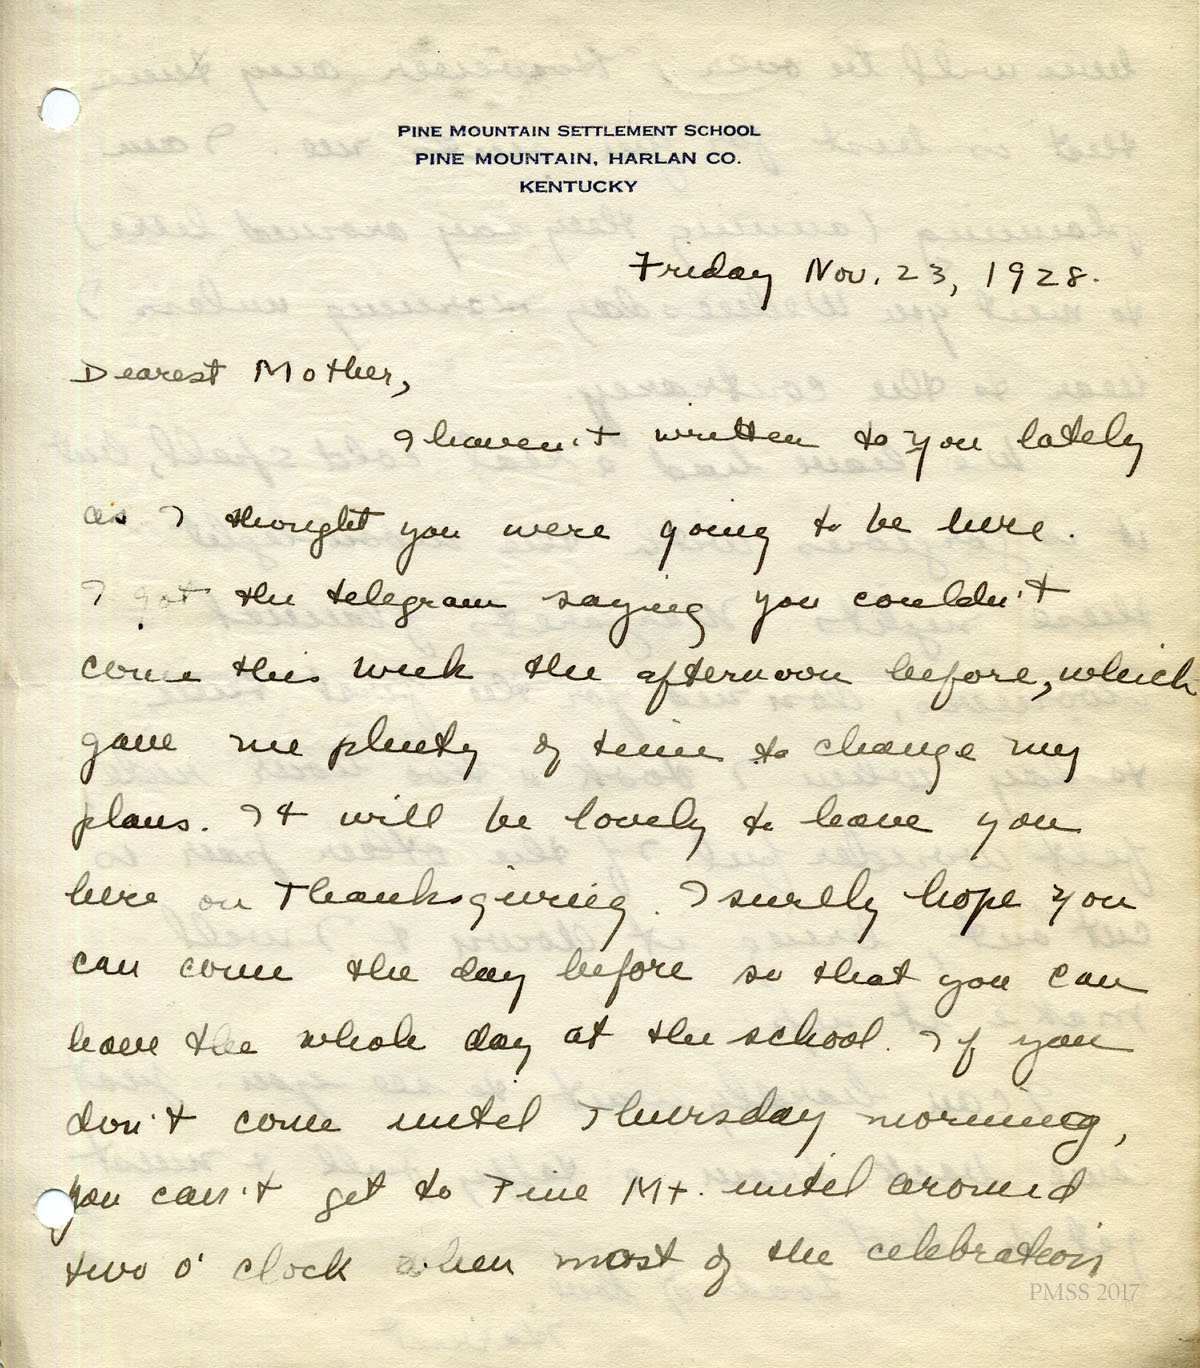 PINE MOUNTAIN SETTLEMENT SCHOOL
PINE MOUNTAIN, HARLAN CO.
KENTUCKY
Friday Nov. 23, 1928.
Dearest Mother,
I haven't written to you lately
as I thought you were going to be here.
I got the telegram saying you couldn't
come this week the afternoon before, which
gave me plenty of time to change my
plans. It will be lovely to have you
here on Thanksgiving. I surely hope you
can come the day before so that you can
have the whole day at the school. If you
don't come until Thursday morning,
you can't get to Pine Mt. until around
two o'clock when most of the celebration
PMSS 2017